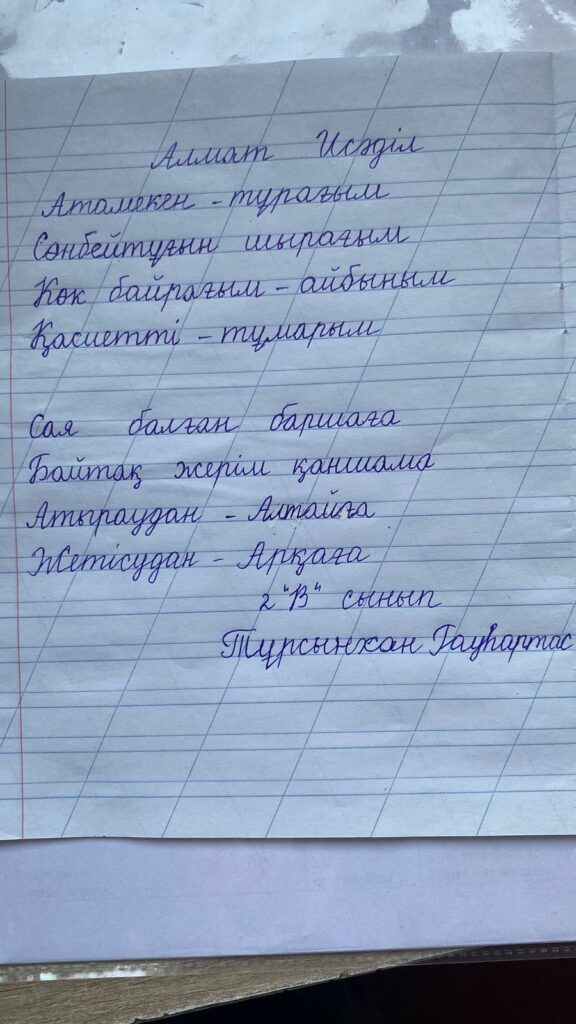 Алмат Исәділ
Атамекен - тұрағым
Сөнбейтұғын шырағым
Көк байрағым - айбыным
Қасиетті - тұмарым
Сая балған баршаға
Байтақ жерім қаншама
Атыраудан - Алтайға
Жетісудан - Арқаға
2 "В" сынып
Тұрсынхан Гауһартас